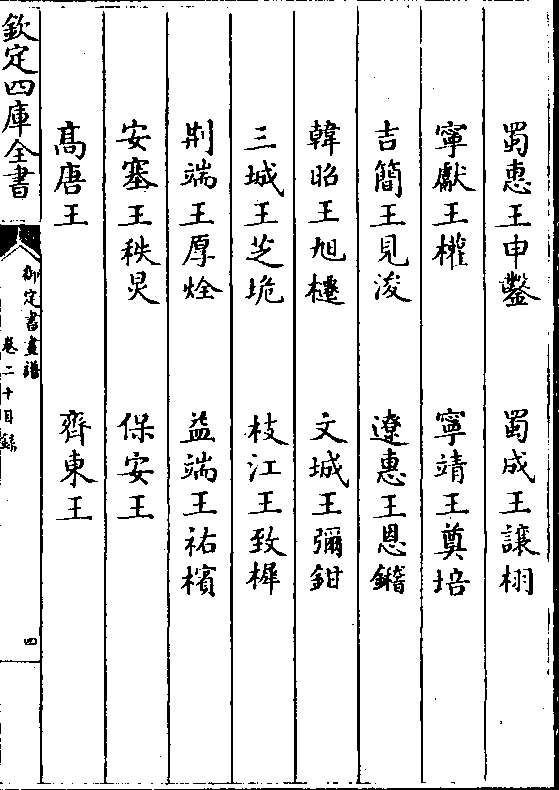 蜀惠王申鑿　蜀成王讓栩
寧獻王權　寧靖王奠培
吉簡王見浚　遼惠王恩鐕
韓昭王旭櫏　文城王彌鉗
三城王芝垝　枝江王致樨
荆端王厚烇　益端王祐檳
安塞王秩炅　保安王
髙唐王　齊東王
欽定四庫全書
御定書畫譜
卷二十目録
四